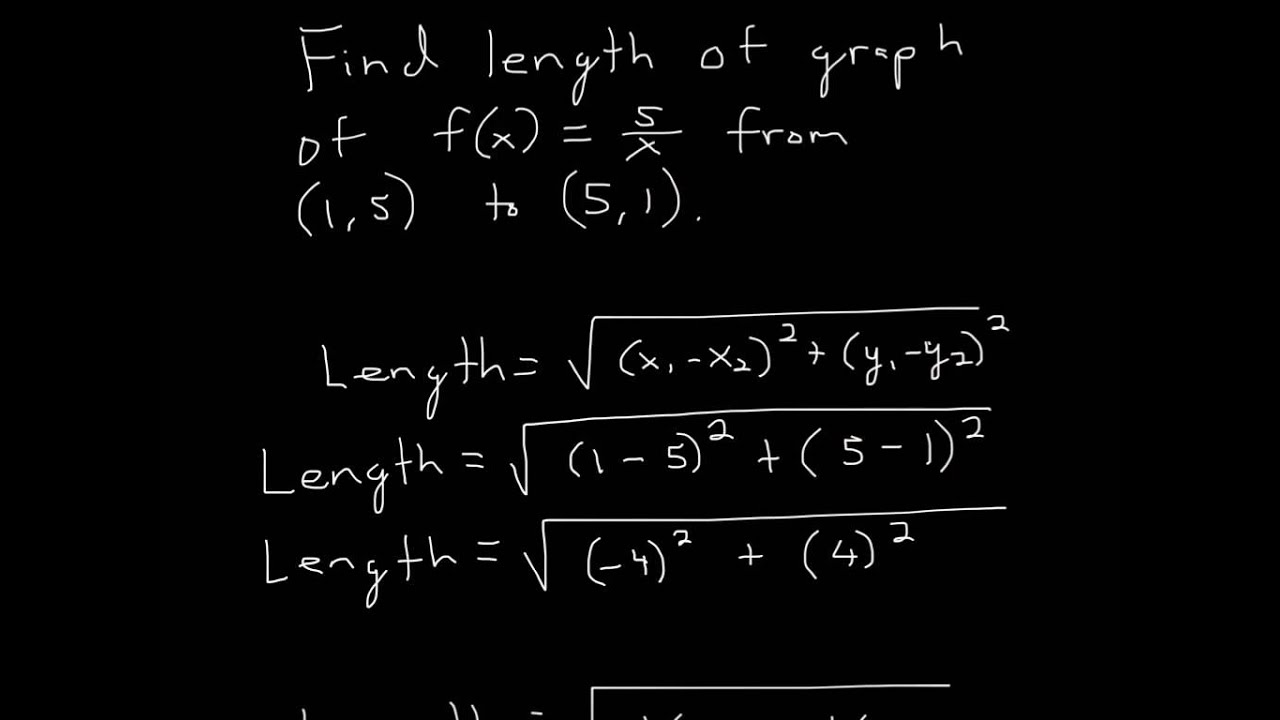 Find length of graph
of f(x) = 5/x from
(1,5) to (5,1).
Length = √((x₁-x₂)² + (y₁-y₂)²)
Length = √((1 - 5)² + (5 - 1)²)
Length = √((-4)² + (4)²)